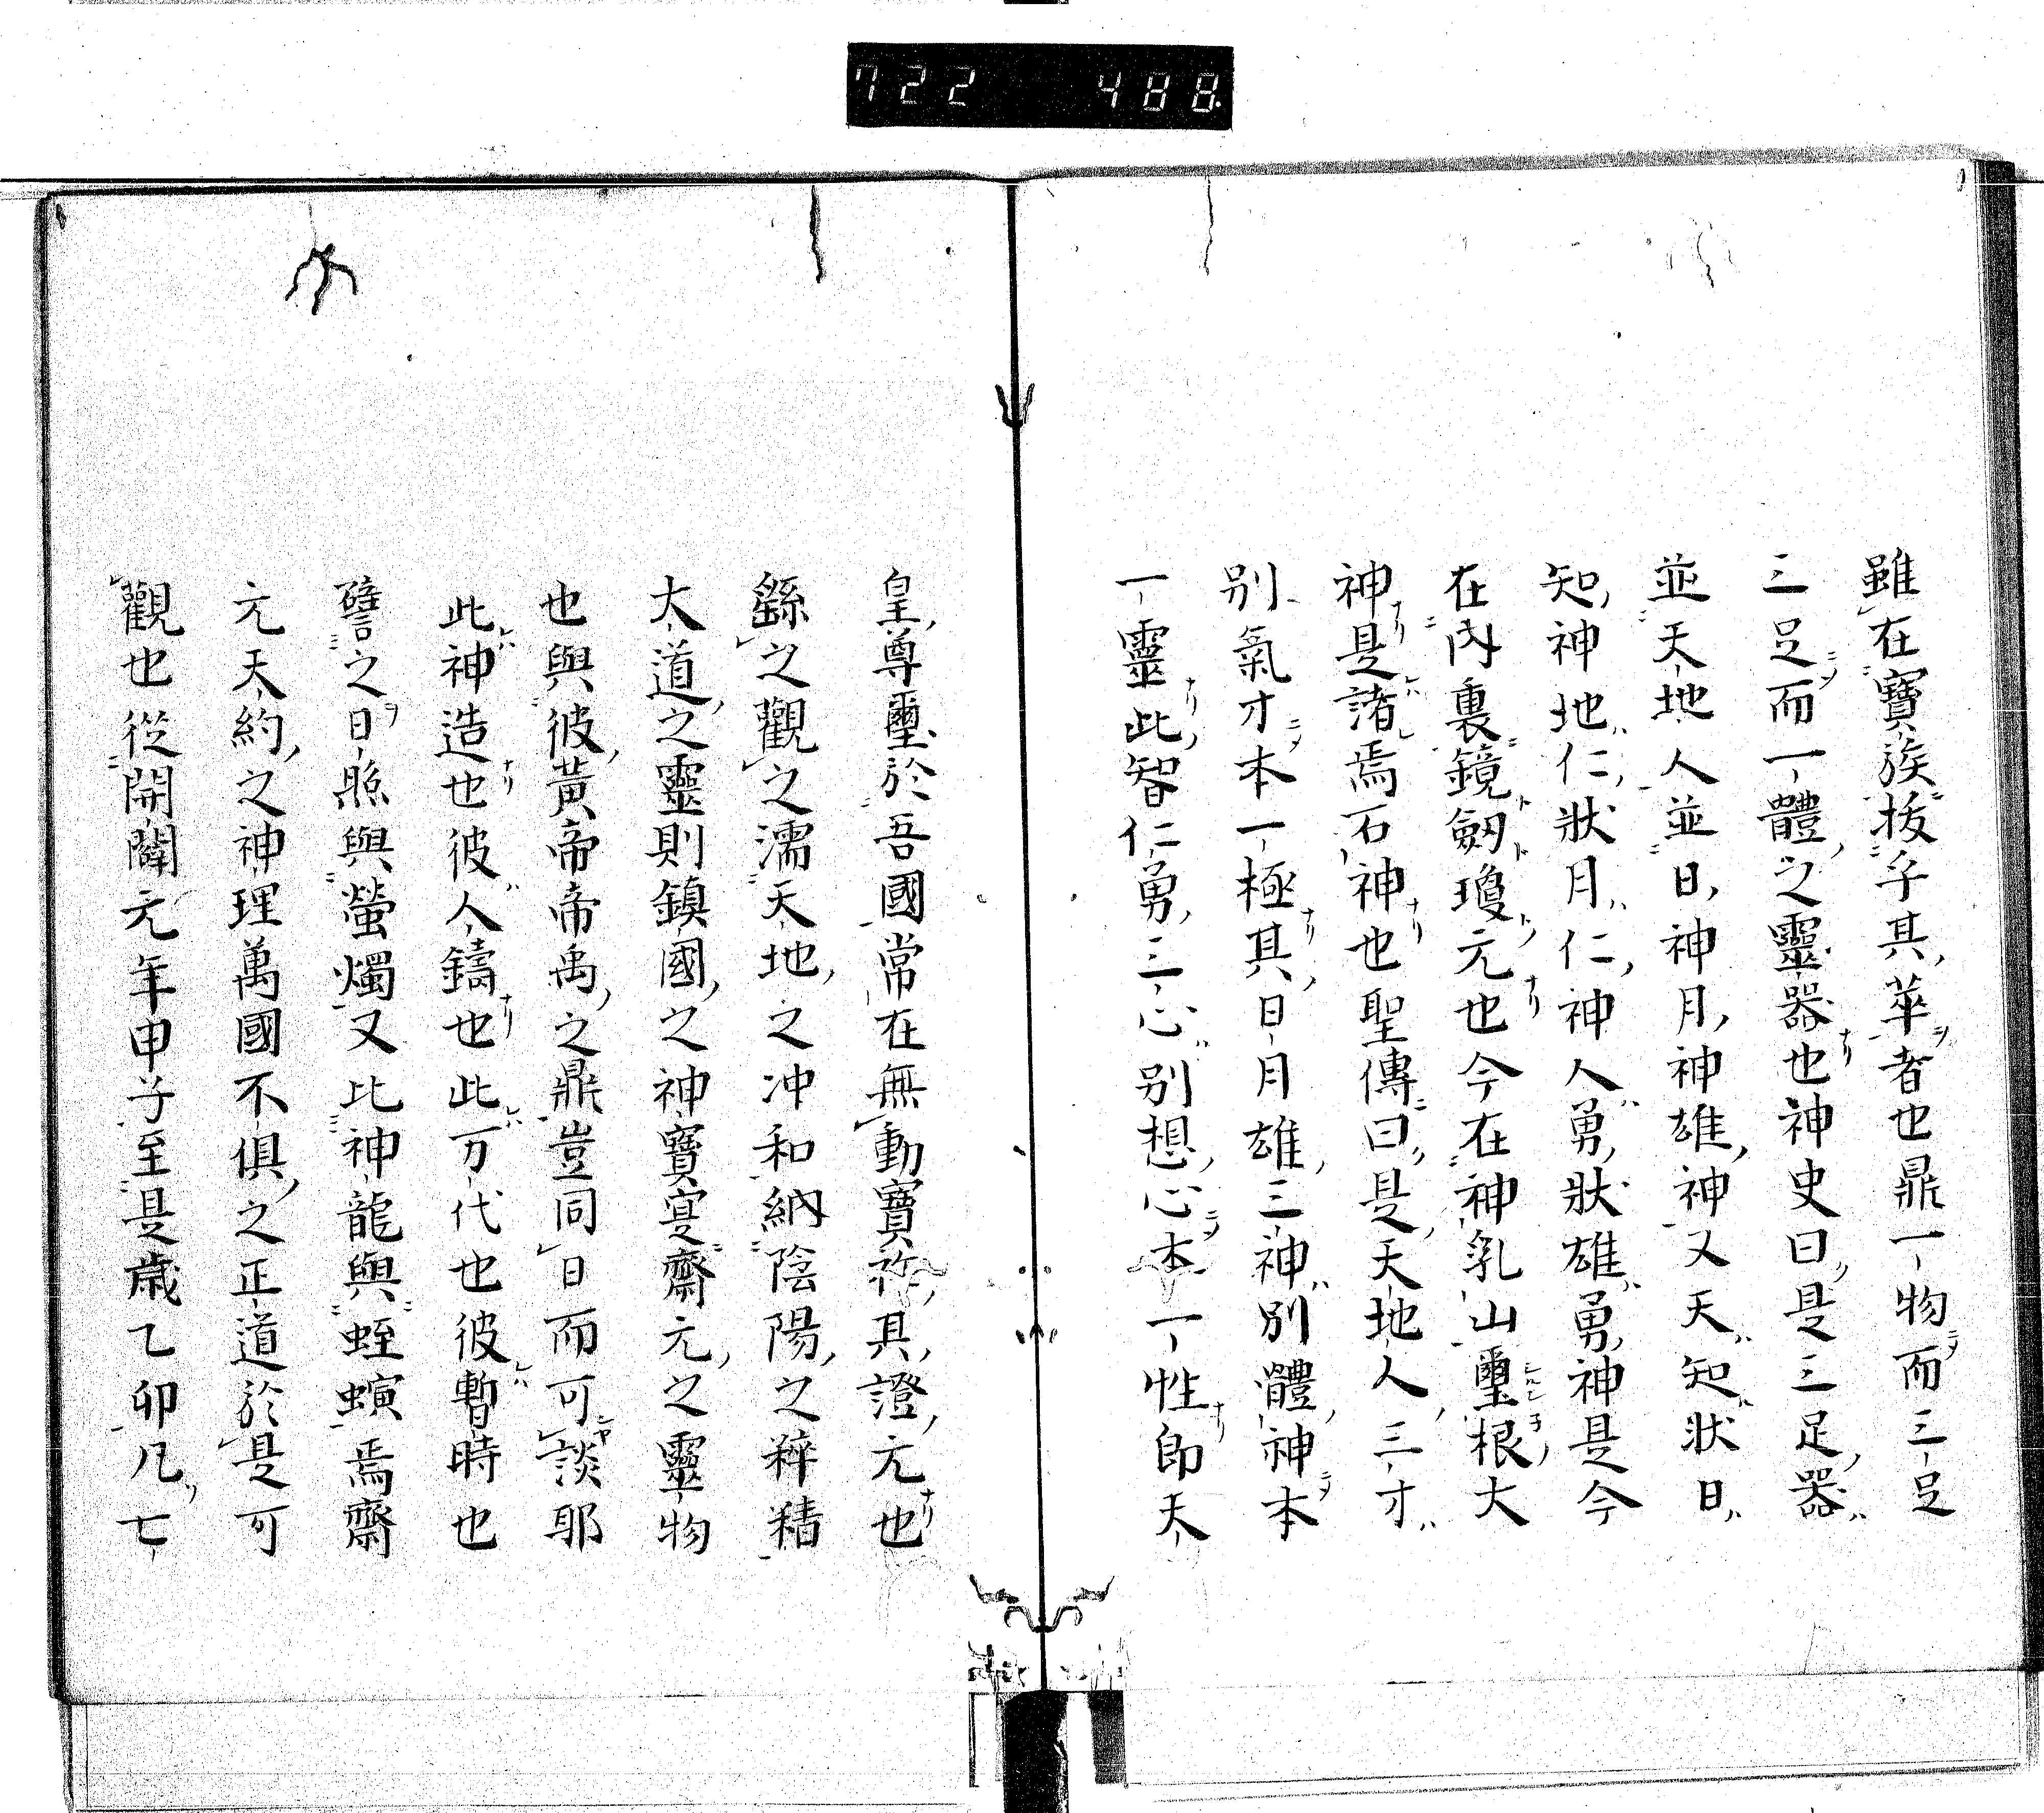 722 488
雖在寶族拔乎其萃者也鼎一物而三足
三足而一體之靈器也神史曰是三足器
並天地人並日神月神雄神又天知狀日
知神地仁狀月仁神人勇狀雄勇神是今
在內裏鏡劔瓊元也今在神乳山璽根大
神是諸焉石神也聖傳曰是天地人三才
別氣才本一極其日月雄三神別體神本
一靈此智仁勇三心別想心本一性即天
皇尊璽於吾國常在無動寶祚其證元也
繇之觀之濡天地之冲和納陰陽之粹精
太道之靈則鎮國之神寶宴齋元之靈物
也與彼黃帝帝禹之鼎豈同日而可談耶
此神造也彼人鑄也此万代也彼暫時也
譬之日照與螢燭又比神龍與蛭螾焉齋
元天約之神理萬國不俱之正道於是可
觀也從開闢元年甲子至是歲乙卯凡七